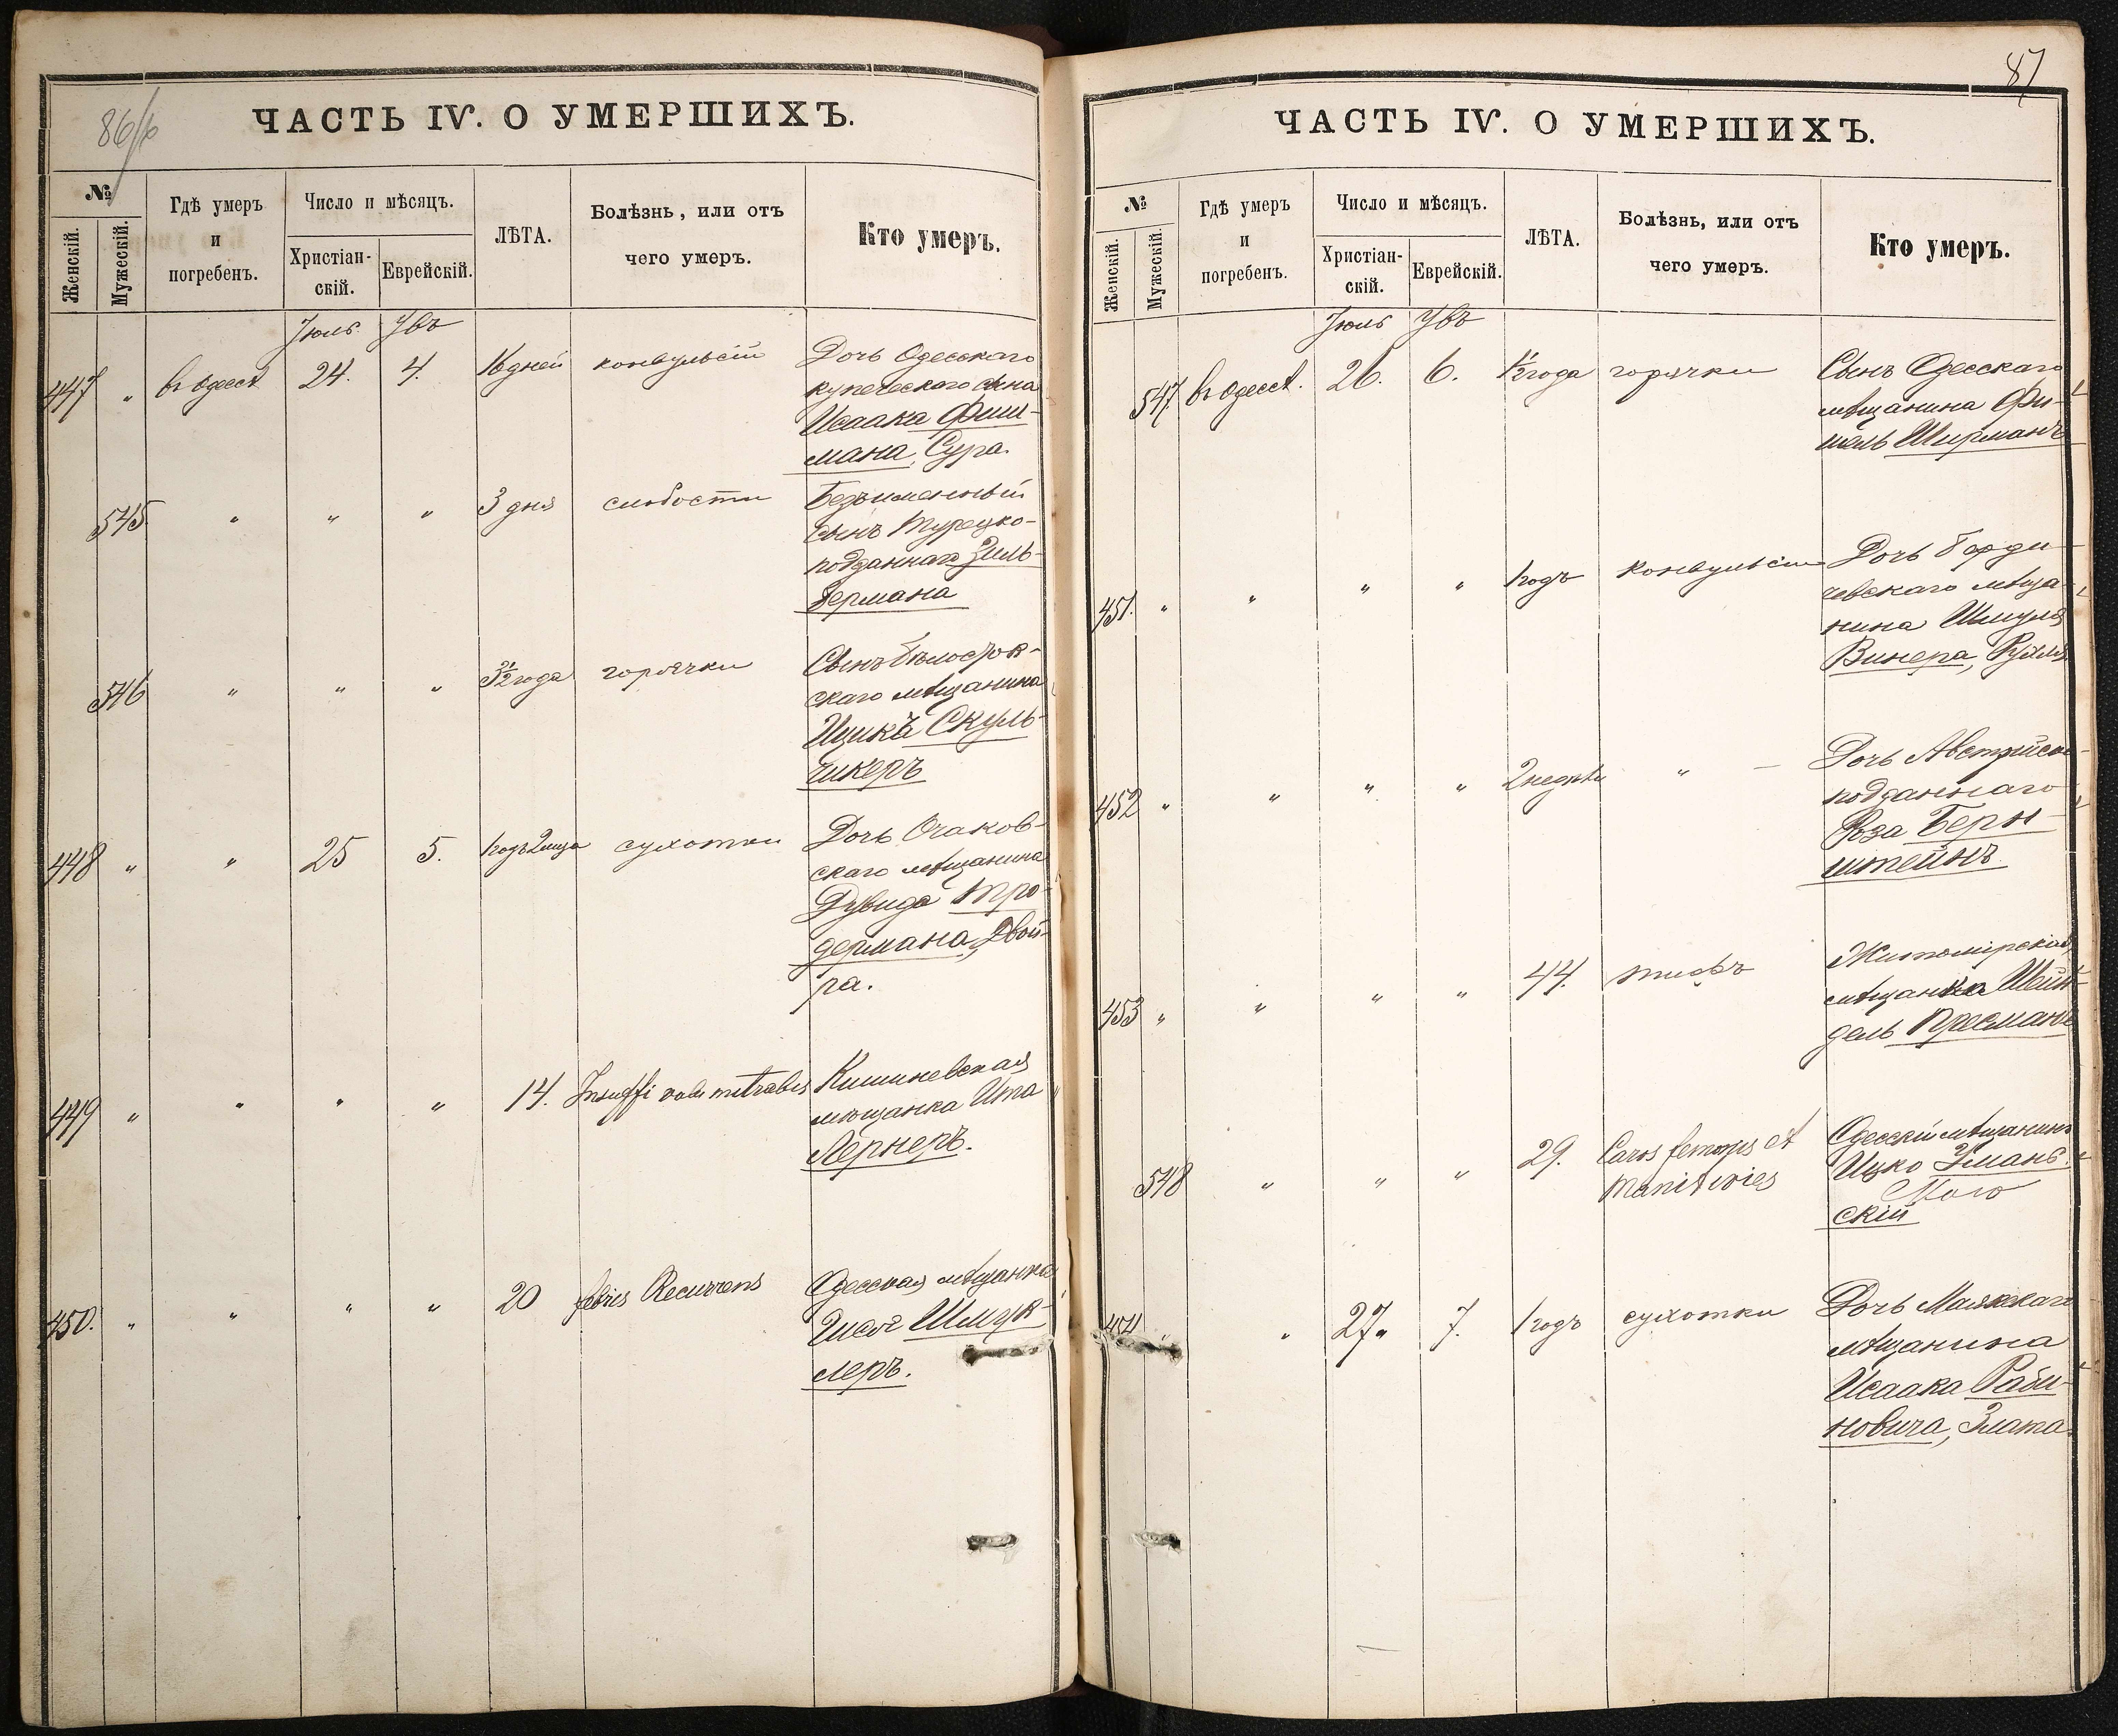 86/b
ЧАСТЬ IV. О УМЕРШИХЪ.
№
Женскій.
Мужескій.
Гдѣ умеръ
и
погребенъ.
Число и мѣсяцъ.
Христіан-
скій.
Еврейскій.
ЛѢТА.
Болѣзнь, или отъ
чего умеръ.
Кто умеръ.
Іюль Увъ
447 " въ Одессѣ 24. 4. 16 дней конвульсіи Дочь Одесскаго
купеческаго сына
Исаака Фиш-
мана, Сура.
545 " " " 3 дня слабости Безъименный
сынъ Турецко-
подданнаго Зиль-
бермана
546 " " " 3½ года горячки Сынъ Бѣлосток-
скаго мѣщанина
Ицикъ Скуль-
чикеръ
448 " " 25 5. 1 годъ 2 мца сухотки Дочь Очаков-
скаго мѣщанина
Дувида Тро-
дермана, Двой-
ра.
449 " " " " 14. Insuffi valv mitrabis Кишиневская
мѣщанка Ита
Лернеръ.
450. " " " " 20 febris Recurrens Одесская мѣщанка
Шмук-
леръ.
87
ЧАСТЬ IV. О УМЕРШИХЪ.
№
Женскій.
Мужескій.
Гдѣ умеръ
и
погребенъ.
Число и мѣсяцъ.
Христіан-
скій.
Еврейскій.
ЛѢТА.
Болѣзнь, или отъ
чего умеръ.
Кто умеръ.
Іюль Увъ
547. въ Одессѣ. 26. 6. ½ года горячки Сынъ Одесскаго
мѣщанина Фи-
шель Ширманъ
451. " " " " 1 годъ конвульсіи Дочь Берди-
чевскаго мѣща-
нина Шмуля
Винера, Рухля
452 " " " " 2 недѣли " — Дочь Австрійско-
подданнаго
Роза Берн-
штейнъ
453 " " " " 44. тифъ Житомірская
мѣщанка Шейн-
дель Пресманъ
548 " " " 29. Caros femoris et
Одесскій мѣщанинъ
Ицко Умань-
скій
454 " " 27" 7. 1 годъ сухотки Дочь Маякскаго
мѣщанина
Исаака Раби-
новича, Злата.